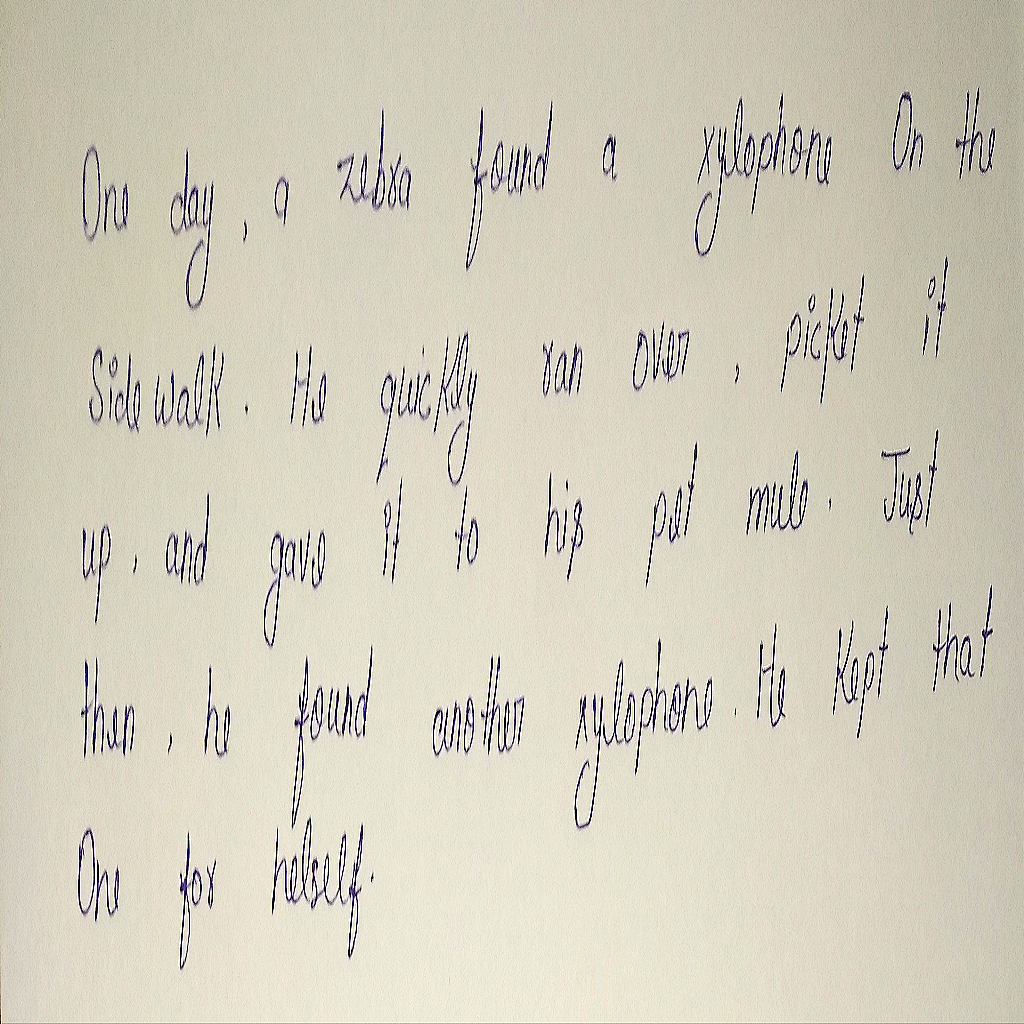 One day, a zebra found a xylophone On the
Sidewalk. He quickly ran over, picket it
up, and gave it to his pet mule. Just
then, he found another xylophone. He Kept that
One for helself.